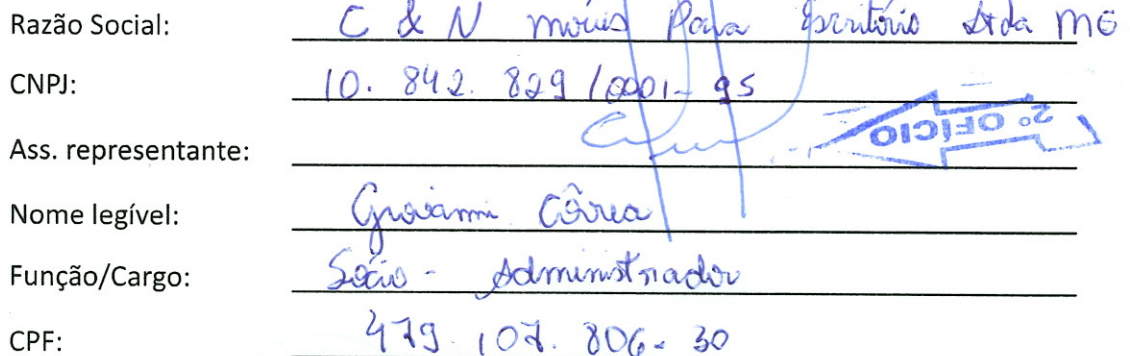 Razão Social: C & N Móveis Para Escritório Ltda ME
CNPJ: 10.842.829/0001-95
2º OFÍCIO
Ass. representante:
Nome legível: Giovanni Côrrea
Função/Cargo: Sócio - Administrador
CPF: 479.107.806-30